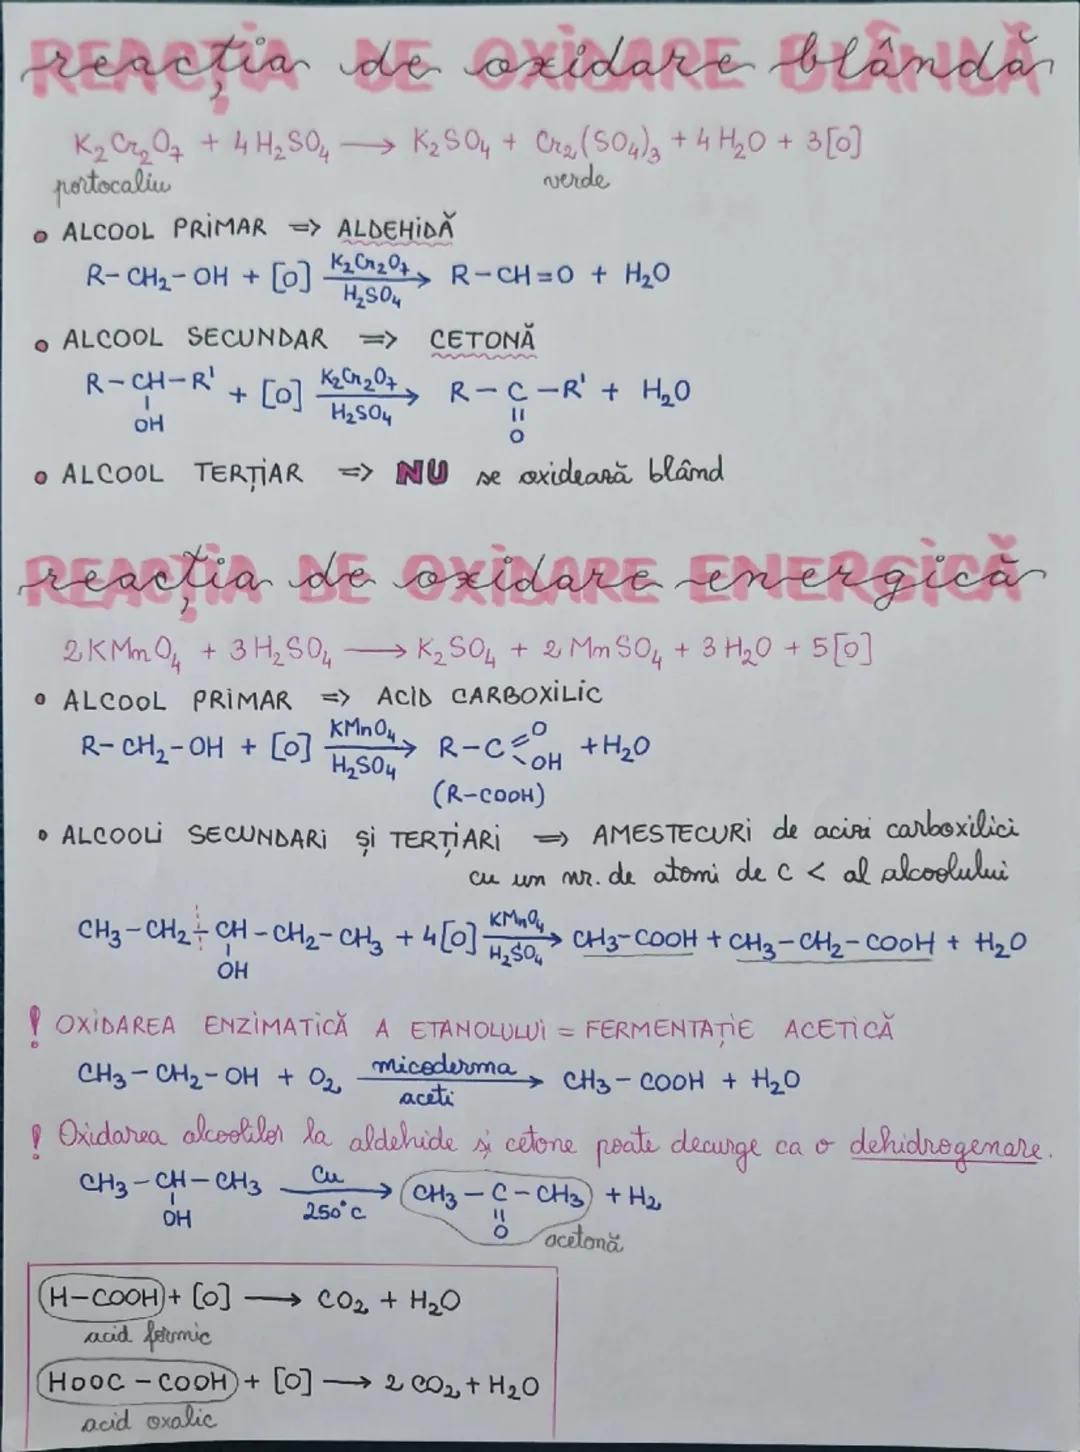 reacția de oxidare blândă
K₂Cr₂O₇ + 4H₂SO₄ ⟶ K₂SO₄ + Cr₂(SO₄)₃ + 4H₂O + 3[O]
portocaliu verde
• ALCOOL PRIMAR => ALDEHIDĂ
R-CH₂-OH + [O] K₂Cr₂O₇ / H₂SO₄ → R-CH=O + H₂O
• ALCOOL SECUNDAR => CETONĂ
R-CH-R' + [O] K₂Cr₂O₇ / H₂SO₄ → R-C-R' + H₂O
OH O
• ALCOOL TERȚIAR => NU se oxidează blând
reacția de oxidare energică
2KMnO₄ + 3H₂SO₄ ⟶ K₂SO₄ + 2MnSO₄ + 3H₂O + 5[O]
• ALCOOL PRIMAR => ACID CARBOXILIC
R-CH₂-OH + [O] KMnO₄ / H₂SO₄ → R-C=O OH + H₂O
(R-COOH)
• ALCOOLI SECUNDARI ȘI TERȚIARI => AMESTECURI de acizi carboxilici
cu un nr. de atomi de C < al alcoolului
CH₃-CH₂-CH-CH₂-CH₃ + 4[O] KMnO₄ / H₂SO₄ → CH₃-COOH + CH₃-CH₂-COOH + H₂O
OH
! OXIDAREA ENZIMATICĂ A ETANOLULUI = FERMENTAȚIE ACETICĂ
CH₃-CH₂-OH + O₂ micoderma / aceti → CH₃-COOH + H₂O
! Oxidarea alcoolilor la aldehide și cetone poate decurge ca o dehidrogenare.
CH₃-CH-CH₃ Cu / 250°C → CH₃-C-CH₃ + H₂
OH O acetonă
H-COOH + [O] ⟶ CO₂ + H₂O
acid formic
HOOC-COOH + [O] ⟶ 2CO₂ + H₂O
acid oxalic